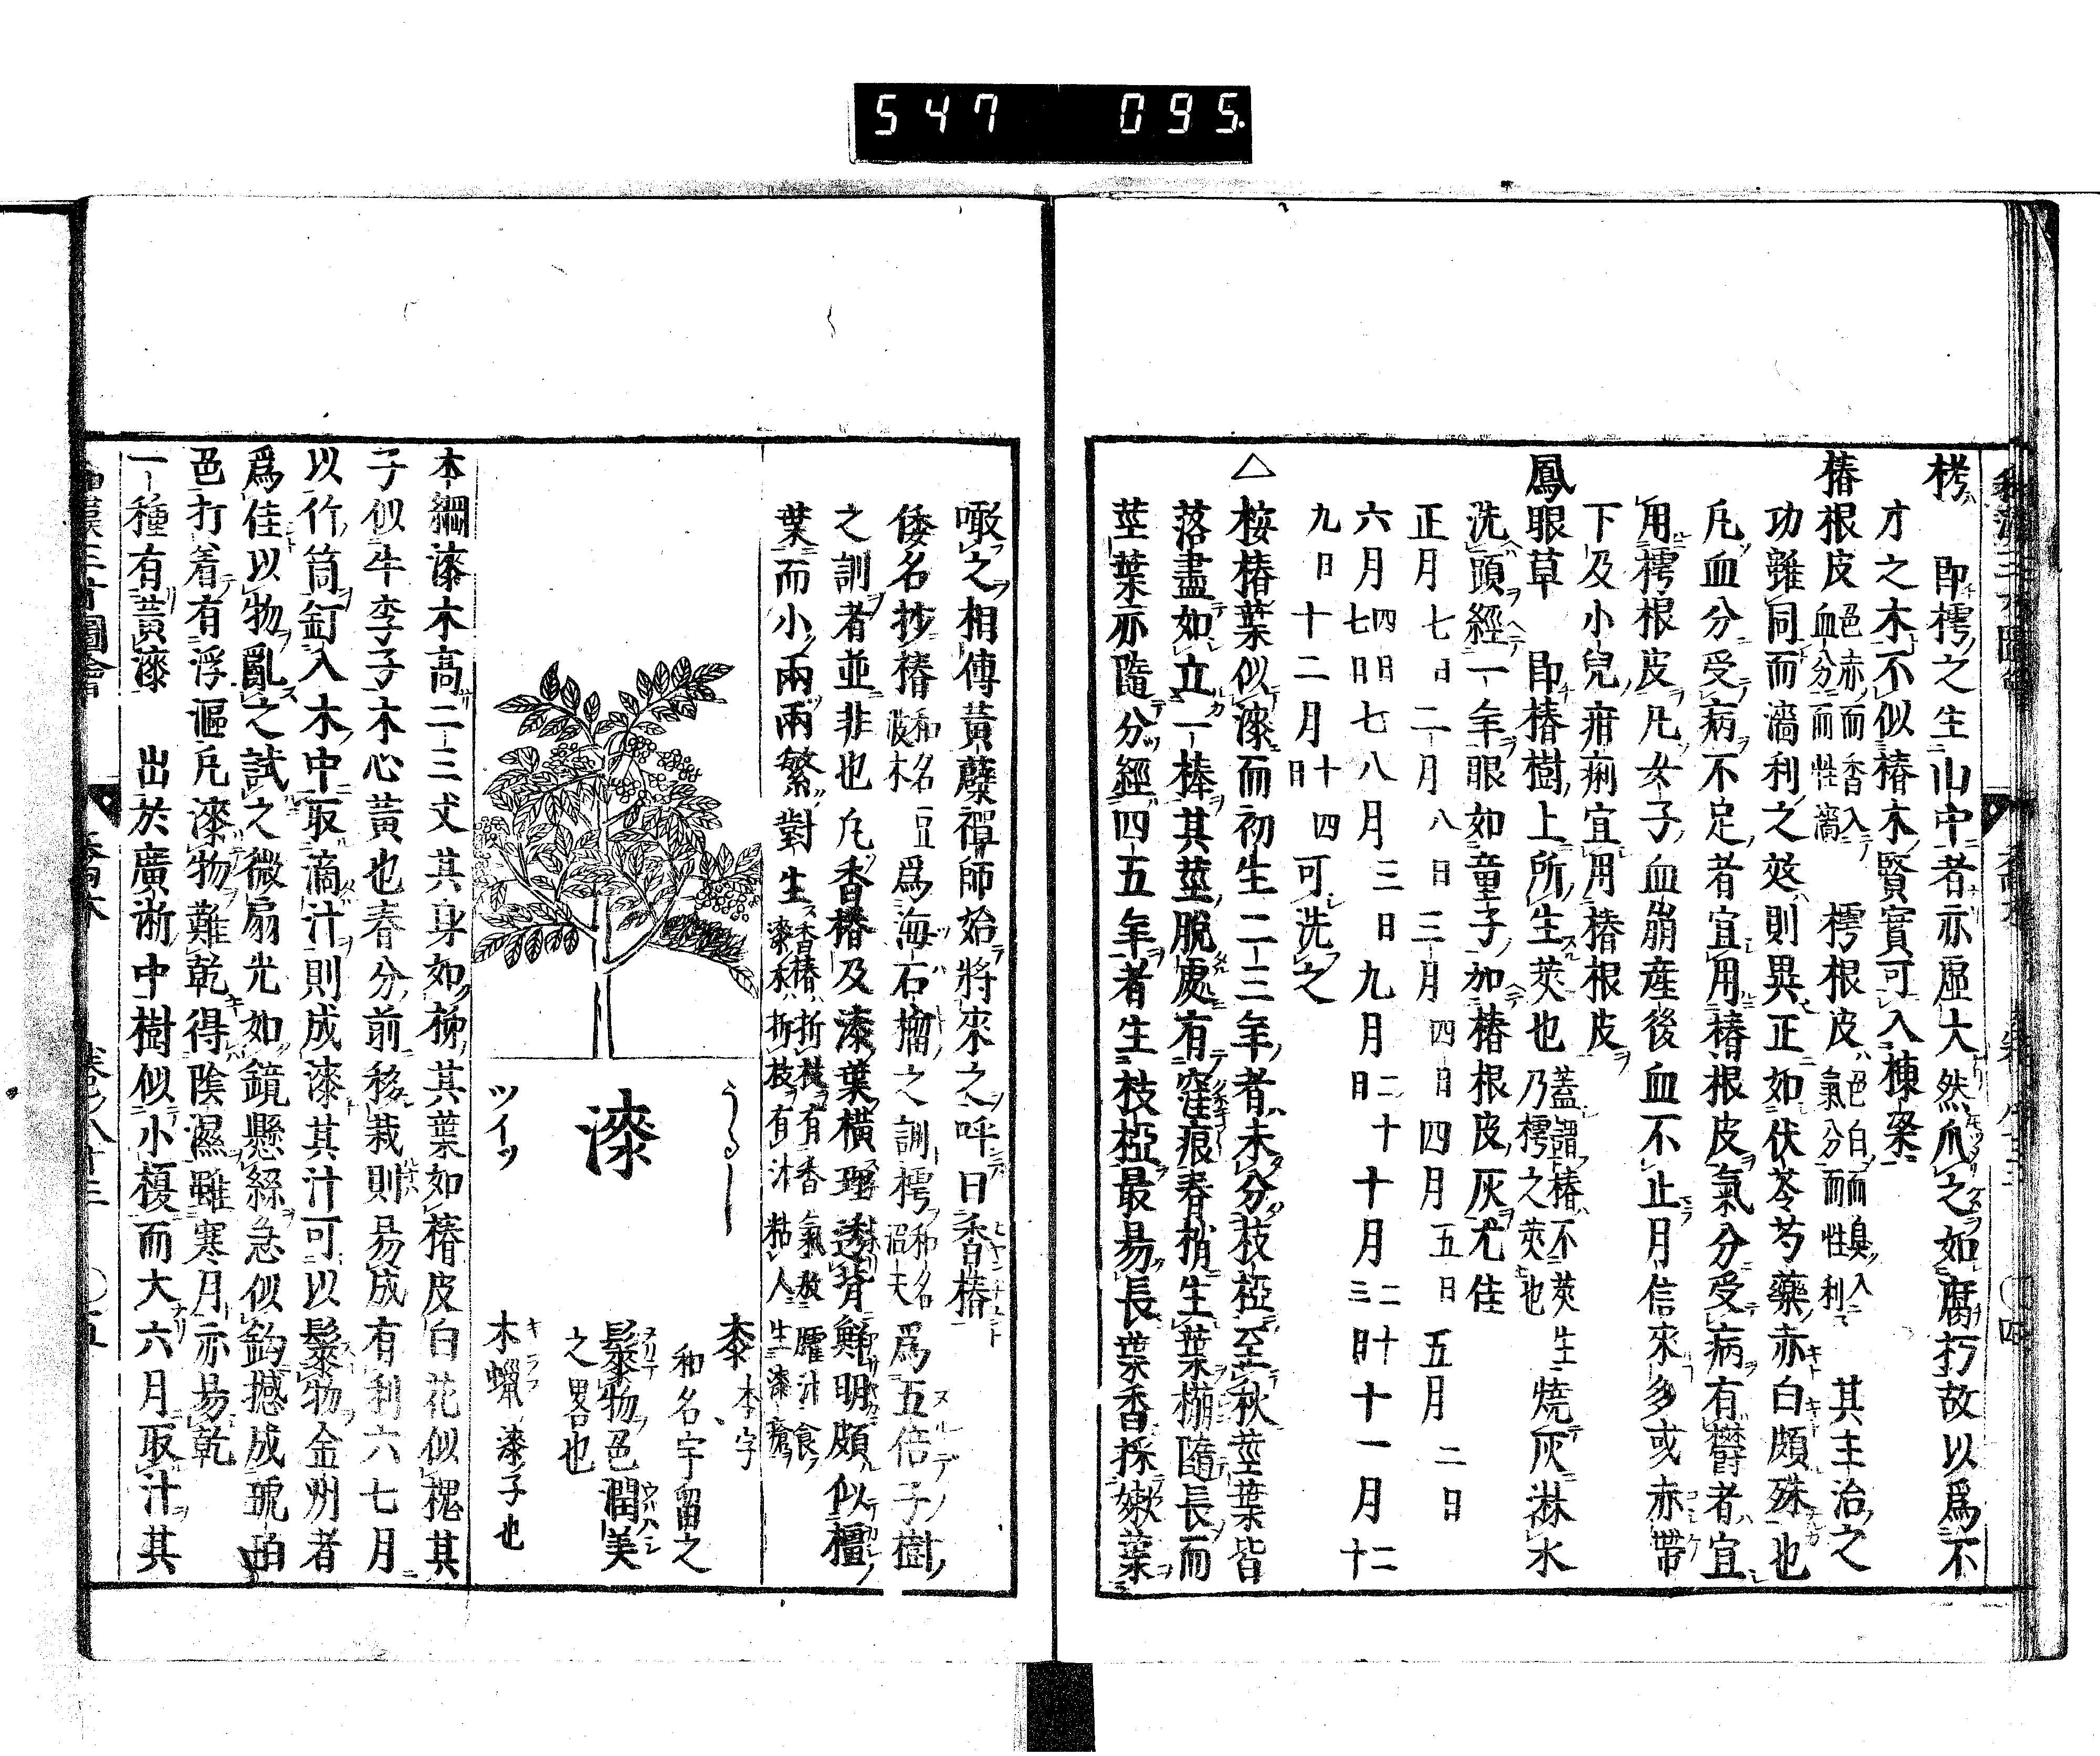 547 095
栲 即樗之生山中者亦虛大然爪之如腐朽故以爲不
才之木不似椿木賢實可入棟梁
椿根皮 色赤而香入血分而性濇 樗根皮 色白而臭入氣分而性利 其主治之
功雖同而濇利之效則異正如茯苓芍藥赤白頗殊也
凡血分受病不足者宜用椿根皮氣分受病有欝者宜
用樗根皮凡女子血崩産後血不止月信來多或赤帶
下及小兒疳痢宜用椿根皮
鳳眼草 即椿樹上所生莢也 蓋謂椿不莢生乃樗之莢也 燒灰淋水
洗頭經一年眼如童子加椿根皮灰尤佳
正月七日二月八日三月四日四月五日五月二日
六月四日七日七八月三日九月二十日十月二十三日十一月二十
九日十二月十四日十四可洗之
△按椿葉似漆而初生二三年者未分枝椏至秋莖葉皆
落盡如立一棒其莖脫處有窪痕春梢生葉槲隨長而
莖葉亦隨分經四五年者生枝椏最易長葉香採嫩葉
噉之相傳黃蘗禪師始將來之呼曰香椿
倭名抄椿 和名波木 豆爲海石榴之訓樗 和名沼天 爲五倍子樹
之訓者並非也凡香椿及漆葉橫理透背鮮明頗似櫨
葉而小兩兩繁對生 香椿折枝有香氣教臛汁食漆木折枝有汁粘人生漆瘡
漆
うるし
ツイッ
桼 本字
和名宇留之
髹物色潤美
之畧也
木蠟 漆子也
本綱漆木高二三丈其身如柿其葉如椿皮白花似槐其
子似牛李子木心黃也春分前移栽則易成有利六七月
以竹筒釘入木中取滴汁則成漆其汁可以髹物金州者
爲佳以物亂之試之微扇光如鏡懸絲急似鈎撼成琥珀
色打着有浮漚凡漆物難乾得陰濕雖寒月亦易乾
一種有黃漆 出於廣浙中樹似小榎而大六月取汁其